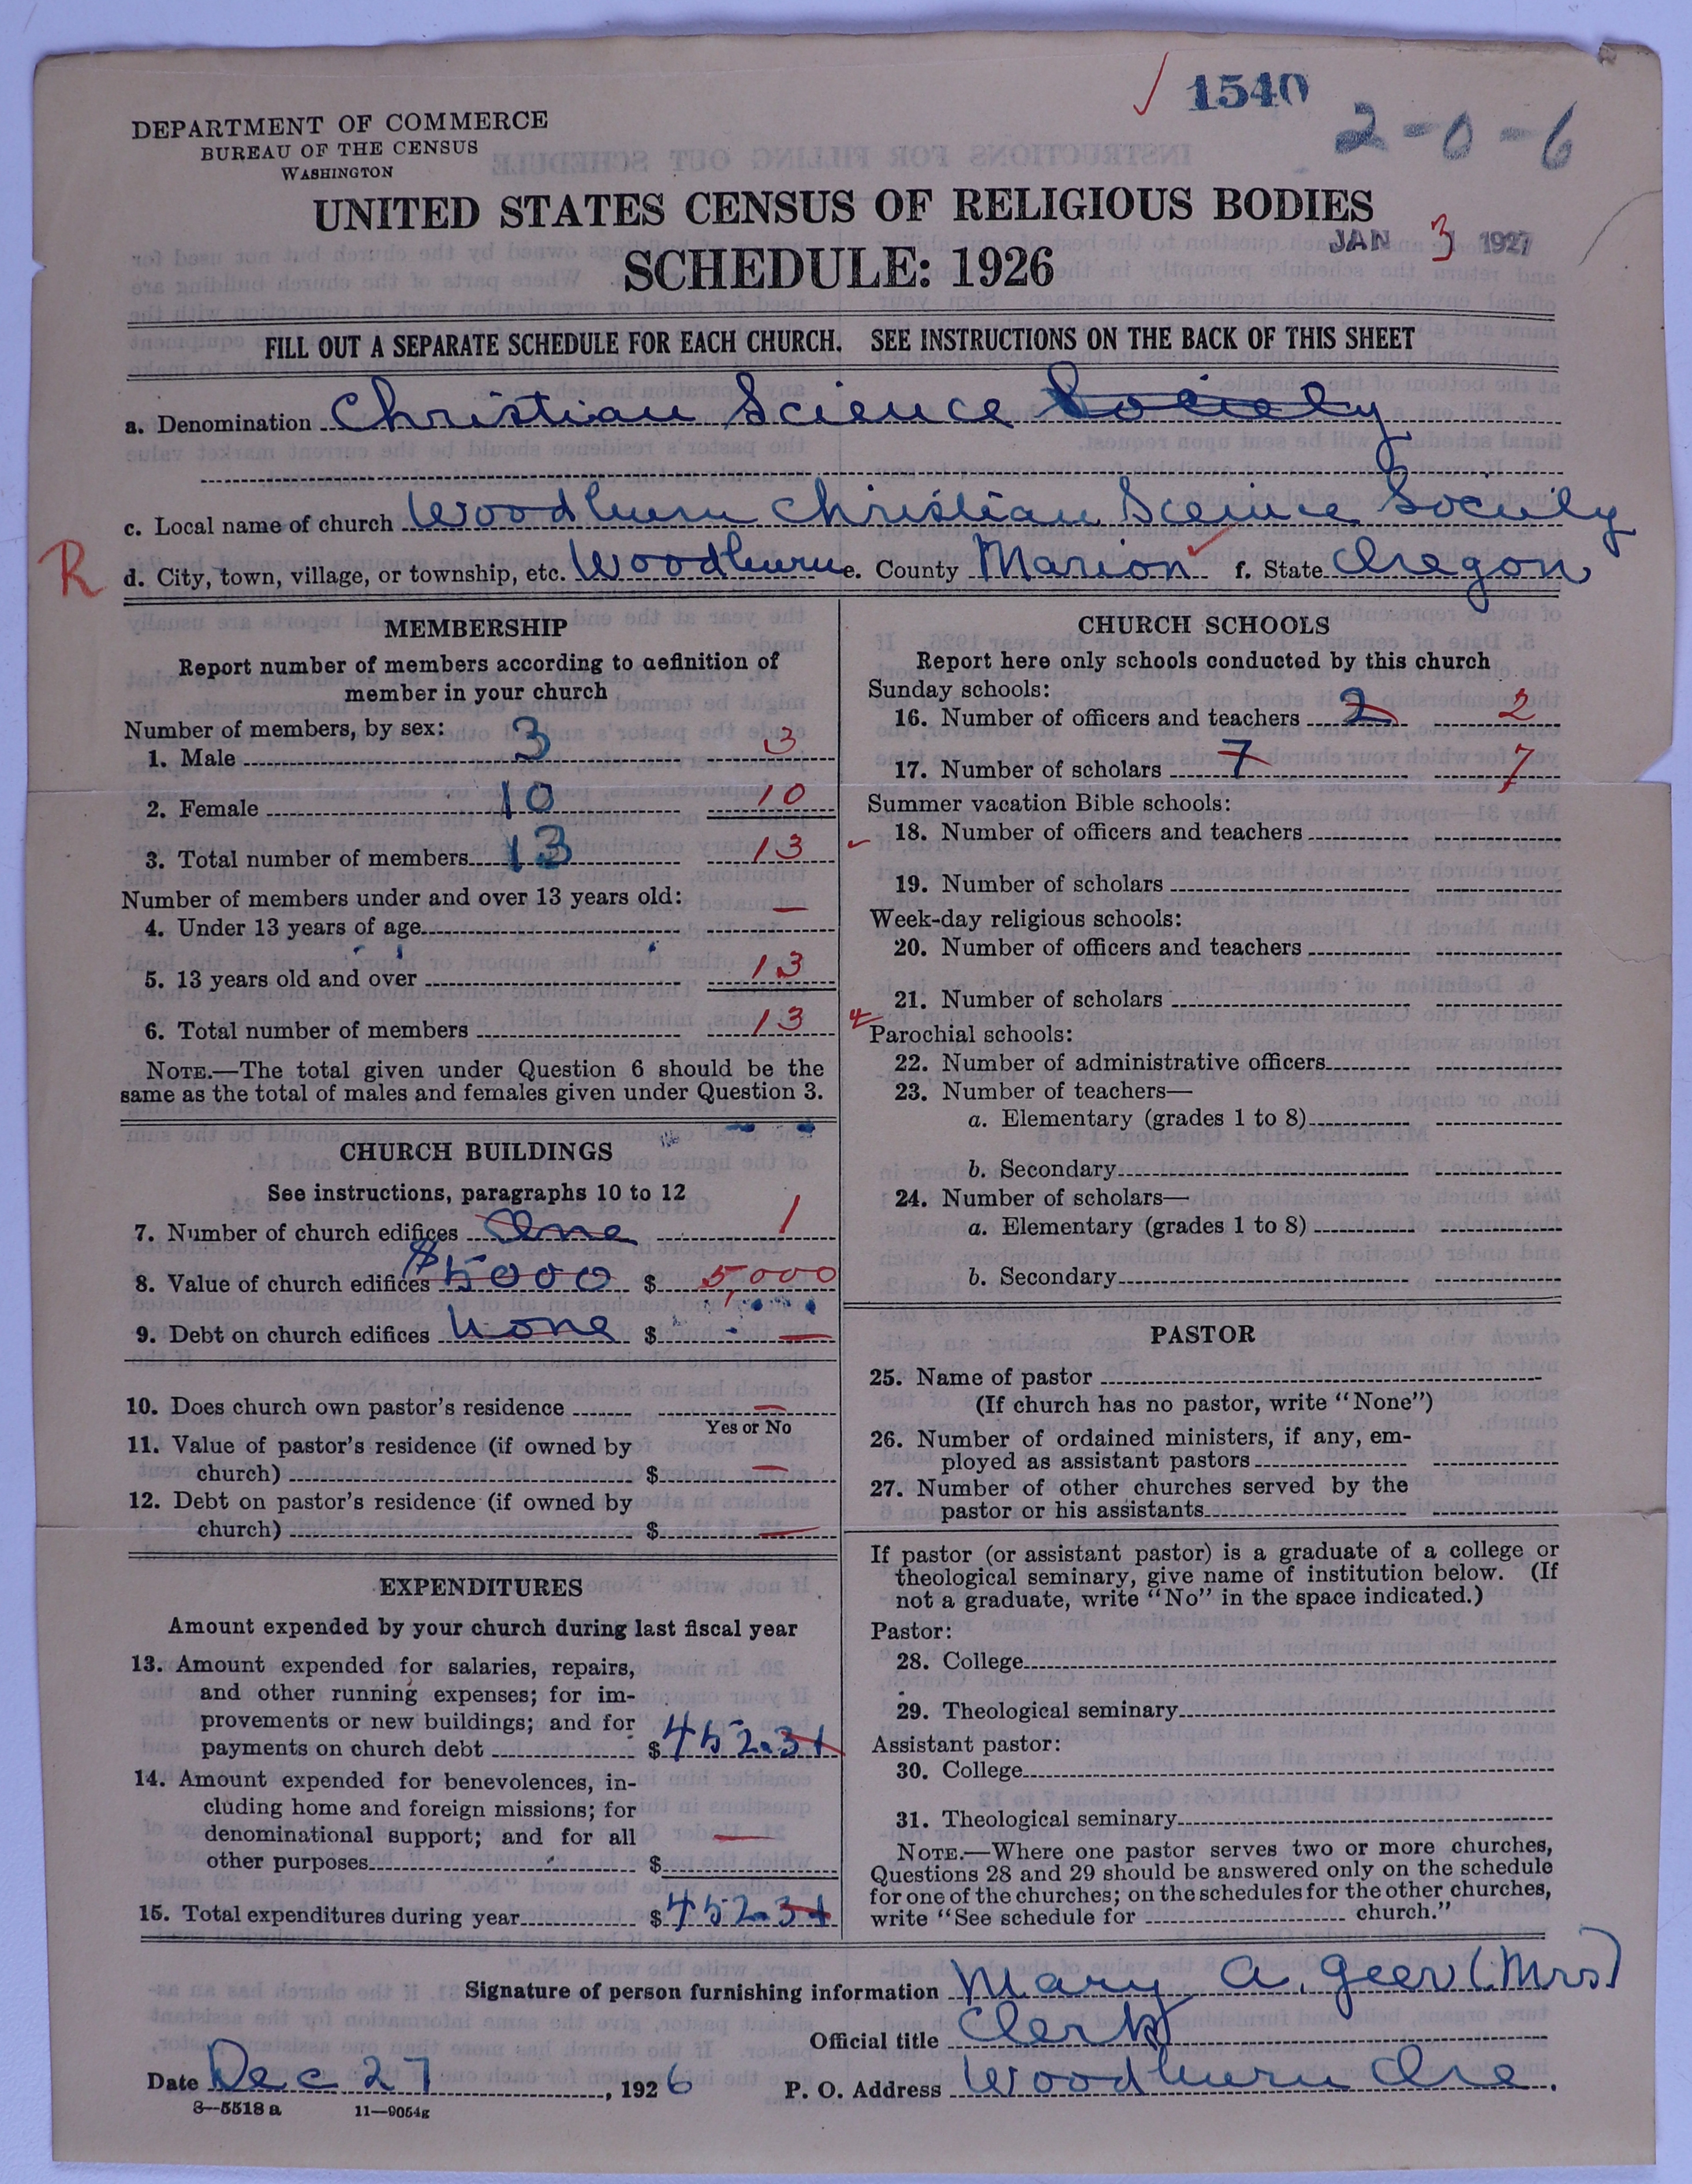 1540
2-0-6
DEPARTMENT OF COMMERCE
BUREAU OF THE CENSUS
WASHINGTON
UNITED STATES CENSUS OF RELIGIOUS BODIES
JAN 3 1927
SCHEDULE: 1926
FILL OUT A SEPARATE SCHEDULE FOR EACH CHURCH. SEE INSTRUCTIONS ON THE BACK OF THIS SHEET
a. Denomination Christian Science Society
c. Local name of church Woodburn Christian Science Society
R d. City, town, village, or township, etc. Woodburn e. County Marion f. State Oregon
MEMBERSHIP
Report number of members according to definition of
member in your church
Number of members, by sex:
1. Male 3 3
2. Female 10 10
3. Total number of members 13 13
Number of members under and over 13 years old:
4. Under 13 years of age —
5. 13 years old and over 13
6. Total number of members 13
NOTE.—The total given under Question 6 should be the
same as the total of males and females given under Question 3.
CHURCH BUILDINGS
See instructions, paragraphs 10 to 12
7. Number of church edifices One 1
8. Value of church edifices $5000 $ 5000
9. Debt on church edifices None $ —
10. Does church own pastor's residence —
Yes or No
11. Value of pastor's residence (if owned by
church) $ —
12. Debt on pastor's residence (if owned by
church) $ —
EXPENDITURES
Amount expended by your church during last fiscal year
13. Amount expended for salaries, repairs,
and other running expenses; for im-
provements or new buildings; and for
payments on church debt $ 452.31
14. Amount expended for benevolences, in-
cluding home and foreign missions; for
denominational support; and for all
other purposes $ —
15. Total expenditures during year $ 452.31
CHURCH SCHOOLS
Report here only schools conducted by this church
Sunday schools:
16. Number of officers and teachers 2 2
17. Number of scholars 7 7
Summer vacation Bible schools:
18. Number of officers and teachers
19. Number of scholars
Week-day religious schools:
20. Number of officers and teachers
21. Number of scholars
Parochial schools:
22. Number of administrative officers
23. Number of teachers—
a. Elementary (grades 1 to 8)
b. Secondary
24. Number of scholars—
a. Elementary (grades 1 to 8)
b. Secondary
PASTOR
25. Name of pastor
(If church has no pastor, write "None")
26. Number of ordained ministers, if any, em-
ployed as assistant pastors
27. Number of other churches served by the
pastor or his assistants
If pastor (or assistant pastor) is a graduate of a college or
theological seminary, give name of institution below. (If
not a graduate, write "No" in the space indicated.)
Pastor:
28. College
29. Theological seminary
Assistant pastor:
30. College
31. Theological seminary
NOTE.—Where one pastor serves two or more churches,
Questions 28 and 29 should be answered only on the schedule
for one of the churches; on the schedules for the other churches,
write "See schedule for church."
Signature of person furnishing information Mary A. Geer (Mrs)
Official title Clerk
Date Dec 27, 1926 P. O. Address Woodburn Ore.
8—5518 a 11—9054g